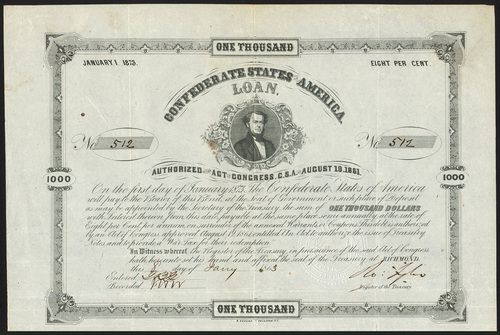 ONE THOUSAND
JANUARY. 1. 1873.
EIGHT PER CENT.
CONFEDERATE STATES OF AMERICA
LOAN,
No 512
No 512
AUTHORIZED BY ACT OF CONGRESS, C.S.A. OF AUGUST 19. 1861.
1000
1000
On the first day of January 1873. The Confederate States of America
will pay to the Bearer of this Bond, at the seat of Government or such place of Deposit
as may be appointed by the Secretary of the Treasury, the sum of ONE THOUSAND DOLLARS
with Interest thereon from this date, payable at the same place semi annually, at the rate of
Eight per Cent. per annum, on surrender of the annexed Warrants or Coupons. This Bond is authorized
by an Act of Congress approved August 19. 1861. entitled An Act to authorize the issue of Treasury
Notes, and to provide a War Tax for their redemption.
In Witness whereof the Register of the Treasury, in pursuance of the said Act of Congress
hath hereunto set his hand and affixed the seal of the Treasury at RICHMOND,
this day of Jany 1863
Entered
Recorded
Register of the Treasury
ONE THOUSAND